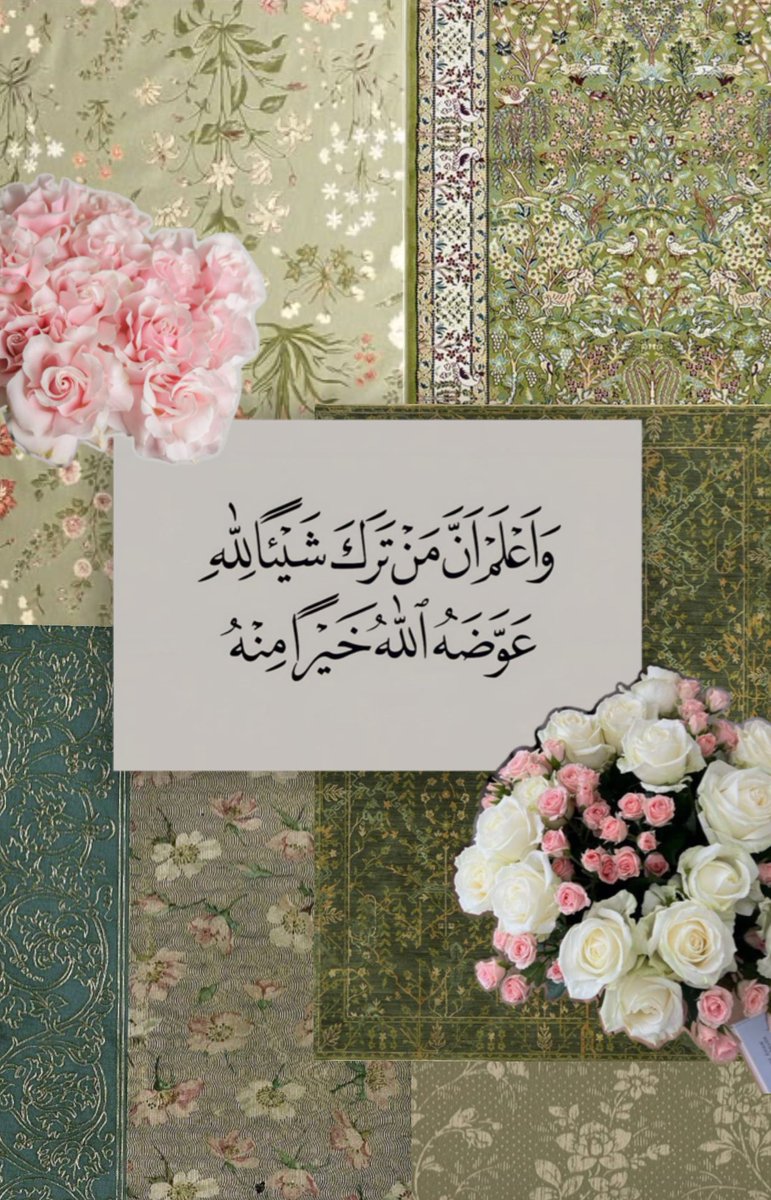 وَاَعْلَمْ اَنَّ مَنْ تَرَكَ شَيْئًا لِلّٰهِ
عَوَّضَهُ ٱللّٰهُ خَيْرًا مِنْهُ